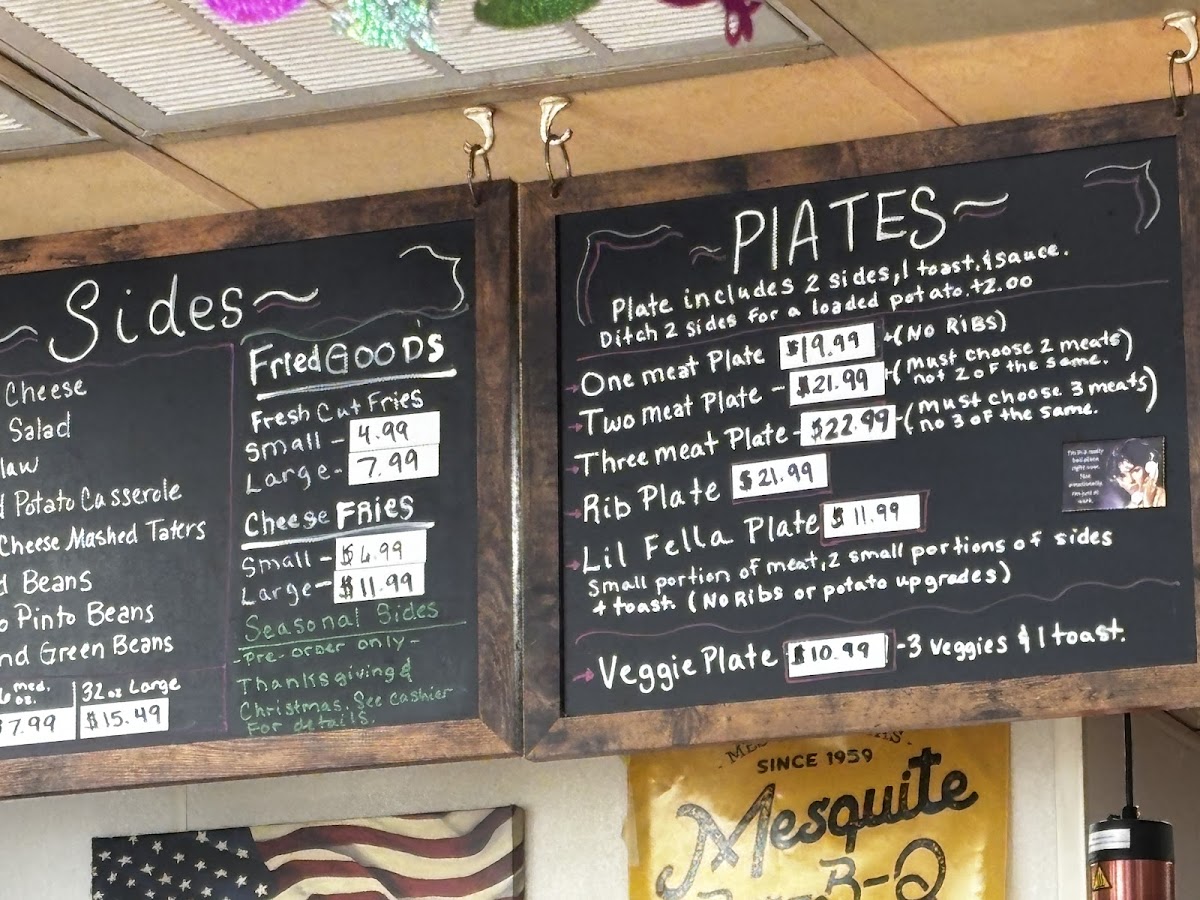 ~ Sides ~
Cheese
Salad
law
d Potato Casserole
Cheese Mashed Taters
d Beans
o Pinto Beans
nd Green Beans
med. oz.
$7.99
32oz Large
$15.49
Fried GOOD'S
Fresh Cut Fries
Small - 4.99
Large - 7.99
Cheese FRIES
Small - $6.99
Large - $11.99
Seasonal Sides
- Pre-order only -
Thanksgiving &
Christmas. See cashier
For details.
~ PlATES ~
Plate includes 2 sides, 1 toast, & sauce.
Ditch 2 sides for a loaded potato. +2.00
→ One meat Plate $19.99 → (NO RIBS)
→ Two meat Plate - $21.99 (Must choose 2 meats)
not 2 of the same.
→ Three meat Plate - $22.99 - (Must choose 3 meats)
no 3 of the same.
→ Rib Plate $21.99
→ Lil Fella Plate $11.99
Small portion of meat, 2 small portions of sides
+ toast. (No Ribs or potato upgrades)
→ Veggie Plate $10.99 - 3 veggies & 1 toast.
SINCE 1959
Mesquite
B-Q